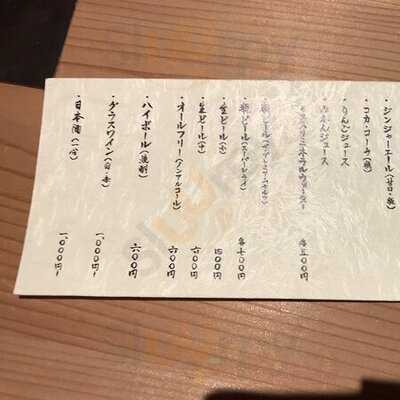 ジンジャーエール(甘口・辛)
コカ・コーラ(瓶)
りんごジュース
みかんジュース
各五〇〇円
瓶ビール
瓶ビール(スーパードライ)
各七〇〇円
生ビール(小)
四〇〇円
生ビール(中)
六〇〇円
オールフリー(ノンアルコール)
六〇〇円
ハイボール
六〇〇円
グラスワイン(白・赤)
一、〇〇〇円〜
日本酒(一合)
一、〇〇〇円〜